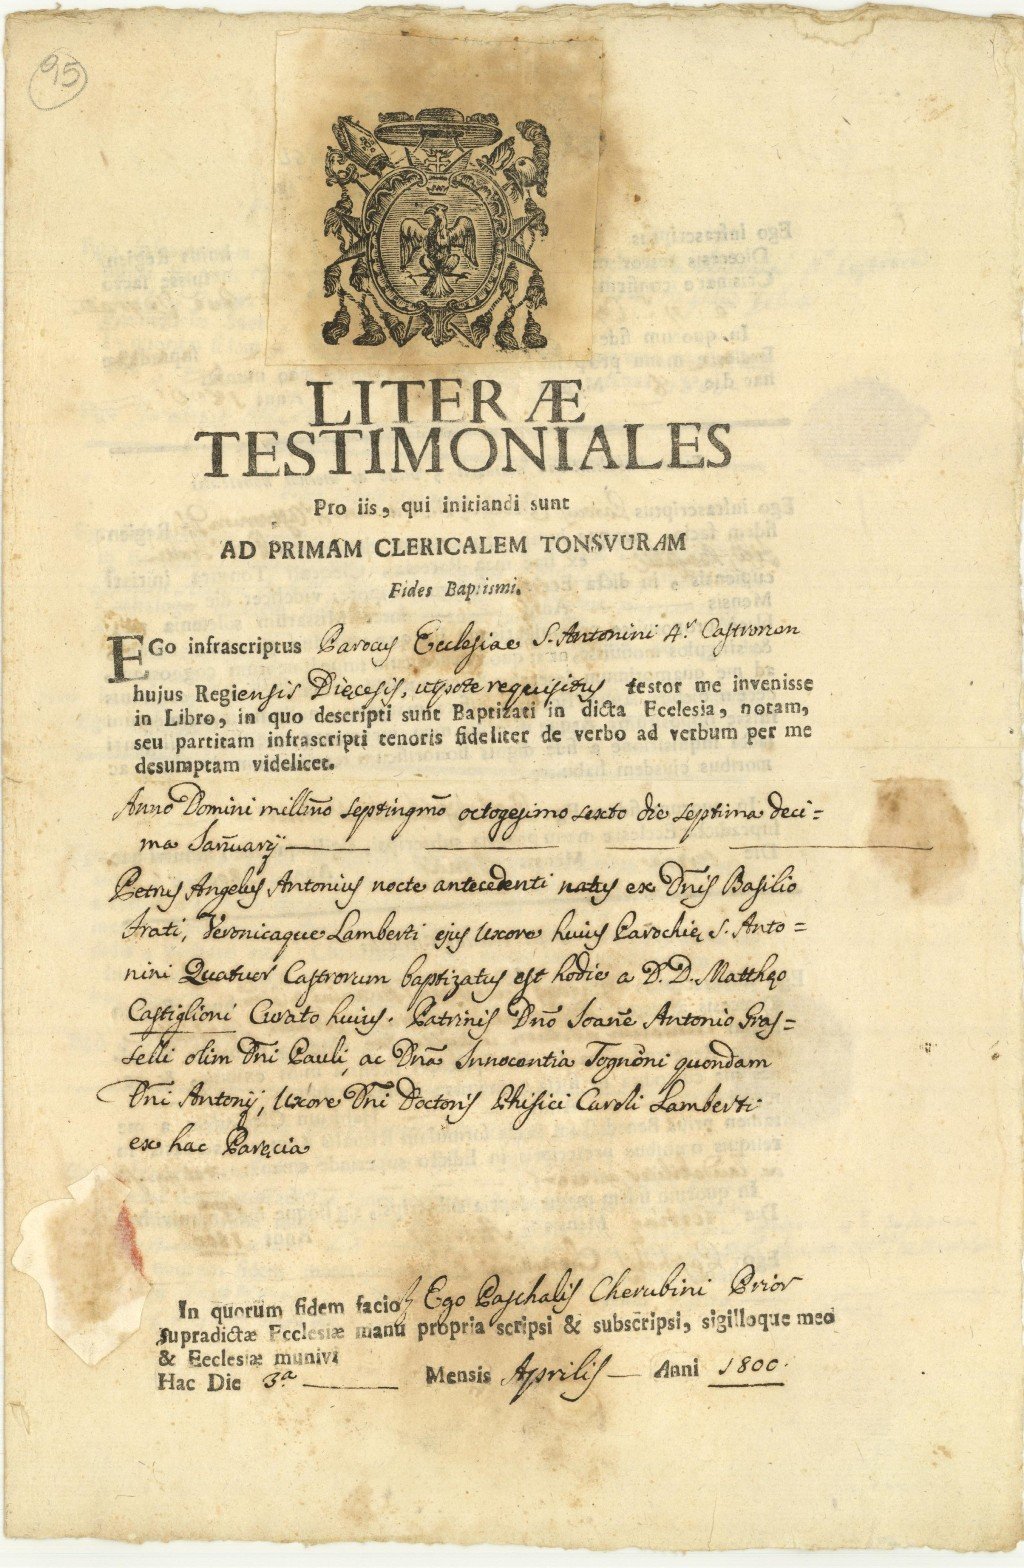 95
LITERÆ
TESTIMONIALES
Pro iis, qui initiandi sunt
AD PRIMAM CLERICALEM TONSVURAM
Fides Baptismi.
EGo infrascriptus Parocus Ecclesiae S. Antonini 4.r Castroron
hujus Regiensis Dięcesis, utpote requisitus testor me invenisse
in Libro, in quo descripti sunt Baptizati in dicta Ecclesia, notam,
seu partitam infrascripti tenoris fideliter de verbo ad verbum per me
desumptam videlicet.
Anno Domini millñõ septingmõ octogesimo sexto die septima deci=
ma Jañuarij
Petrus Angelus Antonius nocte antecedenti natus ex Dñis Basilio
Prati, Veronicaque Lamberti ejus Uxore huius Parochię S. Anto=
nini Quatuor Castrorum baptizatus est hodie a D. D. Matthęo
Castiglioni Curato huius. Patrinis Dñõ Joañe Antonio Gras=
selli olim Dñi Pauli, ac Dñã Innocentia Tognoni quondam
Dñi Antonij, Uxore Dñi Doctoris Phisici Caroli Lamberti
ex hac Paręcia
In quorum fidem facio Ego Paschalis Cherubini Prior
supradictæ Ecclesiæ manu propria scripsi & subscripsi, sigilloque meo
& Ecclesiæ munivi
Hac Die 3.a Mensis Aprilis Anni 1800.